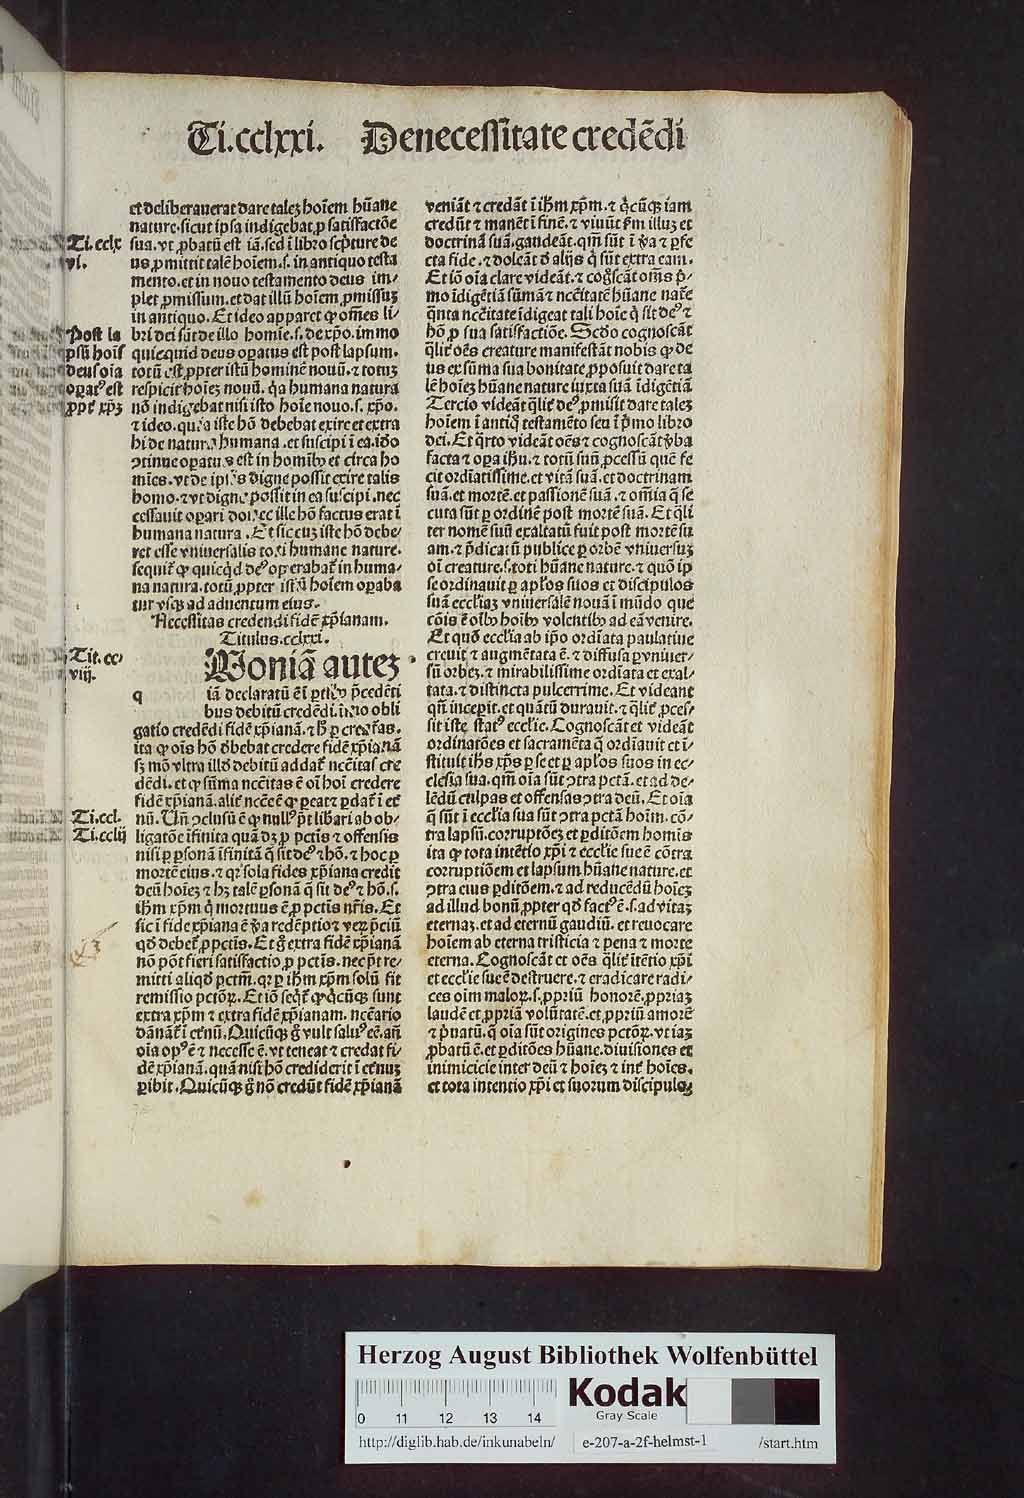 Ti.cclxxi. De necessitate credēdi
et deliberauerat dare talez hoīem hūane
nature.sicut ipsa indigebat,p satisfactōe
sua.vt ,pbatū est iā.sed ī libro scp̄ture de
us ,p mittit talē hoīem.s.in antiquo testa
mento.et in nouo testamento deus im-
plet ,pmissum.et dat illū hoīem ,pmissuz
in antiquo. Et ideo apparet qͥ omēs li-
bri dei sūt de illo homīe.s.de xp̄o.immo
quicquid deus opatus est post lapsum.
totū est ,ppter istū hominē nouū.⁊ totuz
respicit hoīez nouū. qͥa humana natura
nō indigebat nisi isto hoīe nouo.s.xp̄o.
⁊ ideo.quia iste hō debebat exire et extra
hi de natura humana.et suscipi ī ea.iđo
ↄtinue opatus est in homībꝰ et circa ho
mīes.vt de ipsis digne possit exire talis
homo.⁊ vt digne possit in ea suscipi.nec
cessauit opari donec ille hō factus erat ī
humana natura. Et sic cuz iste hō debe-
ret esse vniuersalis toti humane nature.
sequit̄ qͥ quicqͥd deꝰ operabat̄ in huma-
na natura.totū ,ppter istū hoīem opaba
tur vsqꝫ ad aduentum eius.
Necessitas credendi fidē xp̄ianam.
Titulus.cclxxi.
Moniā autez
q iā declaratū ē ī ptibꝰ p̄cedēti
bus debitū credēdi.īmo obli
gatio credēdi fidē xp̄ianā.⁊ hͥ p creatᷣas.
ita qͥ oīs hō đbebat credere fidē xp̄ianā
sꝫ mō vltra illđ debitū addat̄ nccītas cre
dēdi.et qͥ sūma nccītas ē oī hoī credere
fidē xp̄ianā.
Ti.cclx
vi.
Post la
psū hoīs
deus oīa
opatꝰ est
,ppt̄ xp̄ꝫ
Tit.cc-
viij.
Ti.ccl.
Ti.cclij
nū. Un̄ ↄclusū ē qͥ nullꝰ pt̄ libari ab ob-
ligatōe īfinita quā dꝫ ,p pctīs ⁊ offensis
nisi p psonā īfinitā q̄ sit deꝰ ⁊ hō.⁊ hoc p
mortē eius.
ihm̄ xp̄m qͥ mortuus ē ,p pctīs nr̄is. Et
sic ī fide xp̄iana ē v̄a redēptio ⁊ veꝝ p̄ciū
nō pōt fieri satisfactio ,p pctīs.nec pt̄ re-
mitti aliqđ pctm̄.qꝛ p ihm̄ xp̄m solū fit
extra xp̄m ⁊ extra fidē xp̄ianam.nccārio
oīa opꝰ ē ⁊ necesse ē.vt teneat ⁊ credat fi-
dē xp̄ianā.quā nisi hō crediderit ī et̄nuz
pibit. Quicūqꝫ g̊ nō credūt fidē xp̄ianā
veniāt ⁊ credāt ī ihm̄ xp̄m.⁊ qͥcūqꝫ iam
credūt ⁊ manēt ī finē.⁊ viuūt s̄m illuꝫ et
doctrinā suā.gaudeāt.qm̄ sūt ī v̄a ⁊ pfe
cta fide.⁊ doleāt đ alijs qͥ sūt extra eam.
Et iō oīa clare videāt.⁊ cog̊scāt oēs p̄-
mo īdigētiā sūmā ⁊ nccītatē hūane nat̄e
q̄nta nccītate īdigeat tali hoīe qͥ sit deꝰ ⁊
hō ,p sua satisfactiōe. Scđo cognoscāt
qͣlit̄ oēs creature manifestāt nobis qͥ de
us ex sūma sua bonitate ,pposuit dare ta
lē hoīez hūane nature iuxta suā īdigētiā
Tercio videāt qͣlit̄ deꝰ ,pmisit dare talez
hoīem ī antiqͦ testamēto seu ī p̄mo libro
dei. Et qͣrto videāt oēs ⁊ cognoscāt v̄ba
facta ⁊ opa ihū.⁊ totū suū ,pcessū quē fe
cit ordīatissime.et vitā suā.et doctrinam
suā.et mortē.et passionē suā.⁊ omīa q̄ se
cuta sūt p ordinē post mortē suā. Et qͣli
ter nomē suū exaltatū fuit post mortē su
am.⁊ p̄dicatū publice p orbē vniuersuz
oī creature.s.toti hūane nature.⁊ quō ip
se ordinauit p apłos suos et discipulos
suā eccłiaꝫ vniuersalē nouā ī mūdo que
cōīs ē oībꝰ hoībꝰ volentibꝰ ad eā venire.
Et quō eccłia ab ip̄o ordīata paulatiue
creuit ⁊ augmētata ē.⁊ diffusa p vniuer-
sū orbez.⁊ mirabilissime ordīata et exal-
tata.⁊ distincta pulcerrime. Et videant
qn̄ incepit.et quātū durauit.⁊ qͣlit̄ ,pces-
sit iste statꝰ eccłie. Cognoscāt et videāt
ordinatōes et sacramēta q̄ ordīauit et ī-
stituit ihs xp̄s p se et p apłos suos in ec-
clesia sua.qm̄ oīa sūt ↄtra pctā.et ad de-
lēdū culpas et offensas ↄtra deū. Et oīa
q̄ sūt ī eccłia sua sūt ↄtra pctā hoīm.cō-
tra lapsū.corruptōez et pditōem homīs
ita qͥ tota intētio xp̄i ⁊ eccłie sue ē cōtra
corruptiōem et lapsum hūane nature.et
ↄtra eius pditōem.⁊ ad reducēdū hoīez
ad illud bonū ,ppter qđ factꝰ ē.s.ad vitaz
eternaz.et ad eternū gaudiū.et reuocare
hoīem ab eterna tristicia ⁊ pena ⁊ morte
eterna. Cognoscāt et oēs qͣlit̄ ītētio xp̄i
et eccłie sue ē destruere.⁊ eradicare radi-
ces oīm maloꝝ.s.,ppriū honorē.,ppriaz
laudē et ,ppriā volūtatē.et ,ppriū amorē
⁊ p̄uatū.q̄ oīa sūt origines pctōꝝ.vt iaz
,pbatū ē.et pditōes hūane.diuisiones et
inimicicie inter deū ⁊ hoīez ⁊ int̄ hoīes.
et tota intentio xp̄i et suorum discipuloꝝ
Herzog August Bibliothek Wolfenbüttel
0 11 12 13 14
Kodak
Gray Scale
http://diglib.hab.de/inkunabeln/
e-207-a-2f-helmst-1
/start.htm